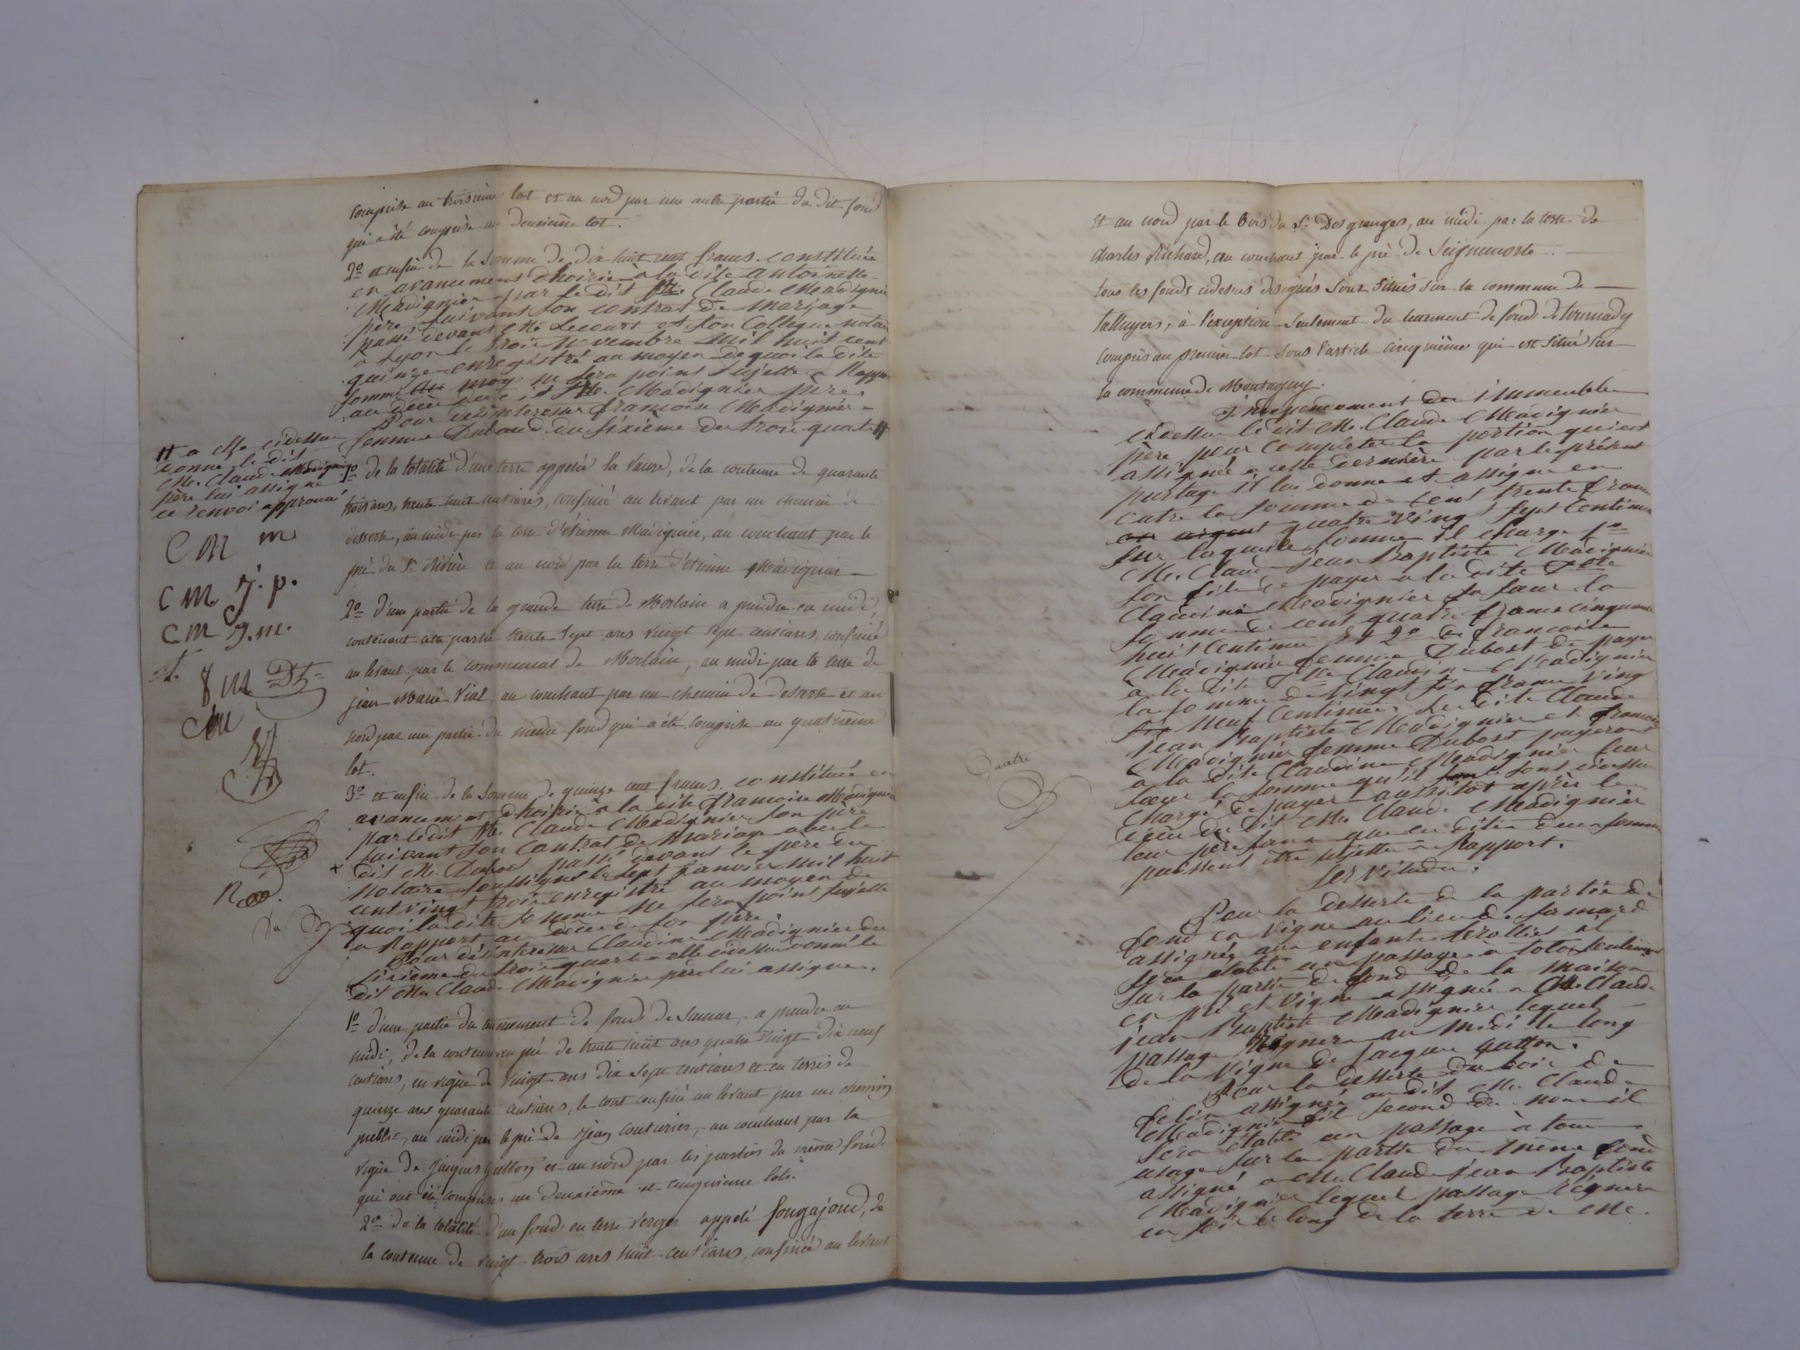 comprise au troisième lot et au nord par une autre partie du dit fond
qui a été comprise au deuxième lot.
2º et enfin de la somme de dix huit cent francs constituée
en avancement d'hoirie à la dite antoinette
Madignier par le dit Claude Madignier
père suivant son contrat de mariage
passé devant Me Lecourt et son Collegue notaires
a Lyon le trois novembre mil huit cent
quinze enregistré au moyen de quoi la dite
somme ne sera point sujette a Rapport
au décès du dit Me. Madignier père
Pour désintéresser françoise Madignier
femme Dubost du sixième des trois quarts #
# a elle cidessus
donné le dit
Me. Claude Madignier
père lui assigne
ce renvoi approuvé
C M m
C M J. p.
C M J. m.
J M
C M
1º de la totalité d'une terre appelée la Vaure, de la contenue de quarante
trois ares, trente huit centiares, confinée au levant par un chemin de
desserte, au midi par la terre d'étienne Madignier, au couchant par le
pré du Sr. et au nord par la terre d'étienne Madignier
2º d'une partie de la grande terre de Morlain a prendre au midi
contenant cette partie trente sept ares vingt sept centiares, confinée
au levant par le communal de Morlain, au midi par la terre de
jean Marie Vial, au couchant par un chemin de desserte et au
nord par une partie du même fond qui a été comprise au quatrième
lot.
3º et enfin de la somme de quinze cent francs constituée en
avancement d'hoirie à la dite françoise Madignier
par le dit Me. Claude Madignier son père
suivant son contrat de mariage avec le
dit Me. Dubost passé devant le père du
Notaire soussigné le sept janvier mil huit
cent vingt trois enregistré au moyen de
quoi la dite somme ne sera point sujette
a Rapport au décès de son père
Pour désintéresser Claudine Madignier du
sixième des trois quarts a elle cidessus donné le
dit Me. Claude Madignier père lui assigne.
1º d'une partie du tennement de fonds de Samar, a prendre au
midi, de la contenue en pré de trente huit ares quatre vingt dix neuf
centiares, en vigne de vingt ares dix sept centiares et en terres de
quinze ares quarante centiares, le tout confiné au levant par un chemin
public, au midi par le pré de Jean Couturier, au couchant par la
vigne de Jacques Gutton et au nord par les parties du même fond
qui ont été comprises au deuxième et cinquième lots.
2º de la totalité d'un fond en terre verger appelé fongajoud, de
la contenue de vingt trois ares huit centiares, confinée au levant
Quatre
Et au nord par le bois du Sr. Desgranges, au midi par la terre de
Charles Richard, au couchant par le pré de Seignemorte.
tous les fonds cidessus désignés sont situés sur la commune de
talluyers, à l'exception seulement du tennement de fonds de tournady
compris au premier lot sous l'article cinquième qui est situé sur
la commune de Montagny.
Indépendamment des immeubles
cidessus le dit Me. Claude Madignier
père pour completer la portion qui est
assignée a cette dernière par le présent
partage il lui donne et assigne en
outre la somme de cent trente francs
en argent quatre vingt sept centimes
sur laquelle somme il charge 1º
Me. Claude Jean Baptiste Madignier
son fils de payer a la dite
Claudine Madignier sa sœur la
somme de cent quatre francs cinquante
huit centimes Et 2º de françoise
Madignier femme Dubost de payer
a la dite Claudine Madignier
la somme de vingt six francs vingt
neuf centimes les dits Claude
Jean Baptiste Madignier et françoise
Madignier femme Dubost payeront
a la dite Claudine Madignier leur
sœur la somme qu'ils sont cidessus
chargé de payer aussitôt après le
décès du dit Me. Claude Madignier
leur père sans que les dites deux sommes
puissent être sujettes a Rapport.
Servitudes.
Pour la desserte de la partie de
fond en vigne au lieu de Samard
assignée aux enfants il
sera établi un passage a seulement
sur la partie de fond de la maison
en pré et vigne assignée a Me. Claude
Jean Baptiste Madignier lequel
passage Régnera au midi le long
de la vigne de Jacques Gutton.
Pour la desserte du bois de
assigné au dit Me. Claude
Madignier fils second du nom il
sera établi un passage à tous
usage sur la partie du même fond
assigné a Me. Claude Jean Baptiste
Madignier lequel passage régnera
en le long de la terre de Me.